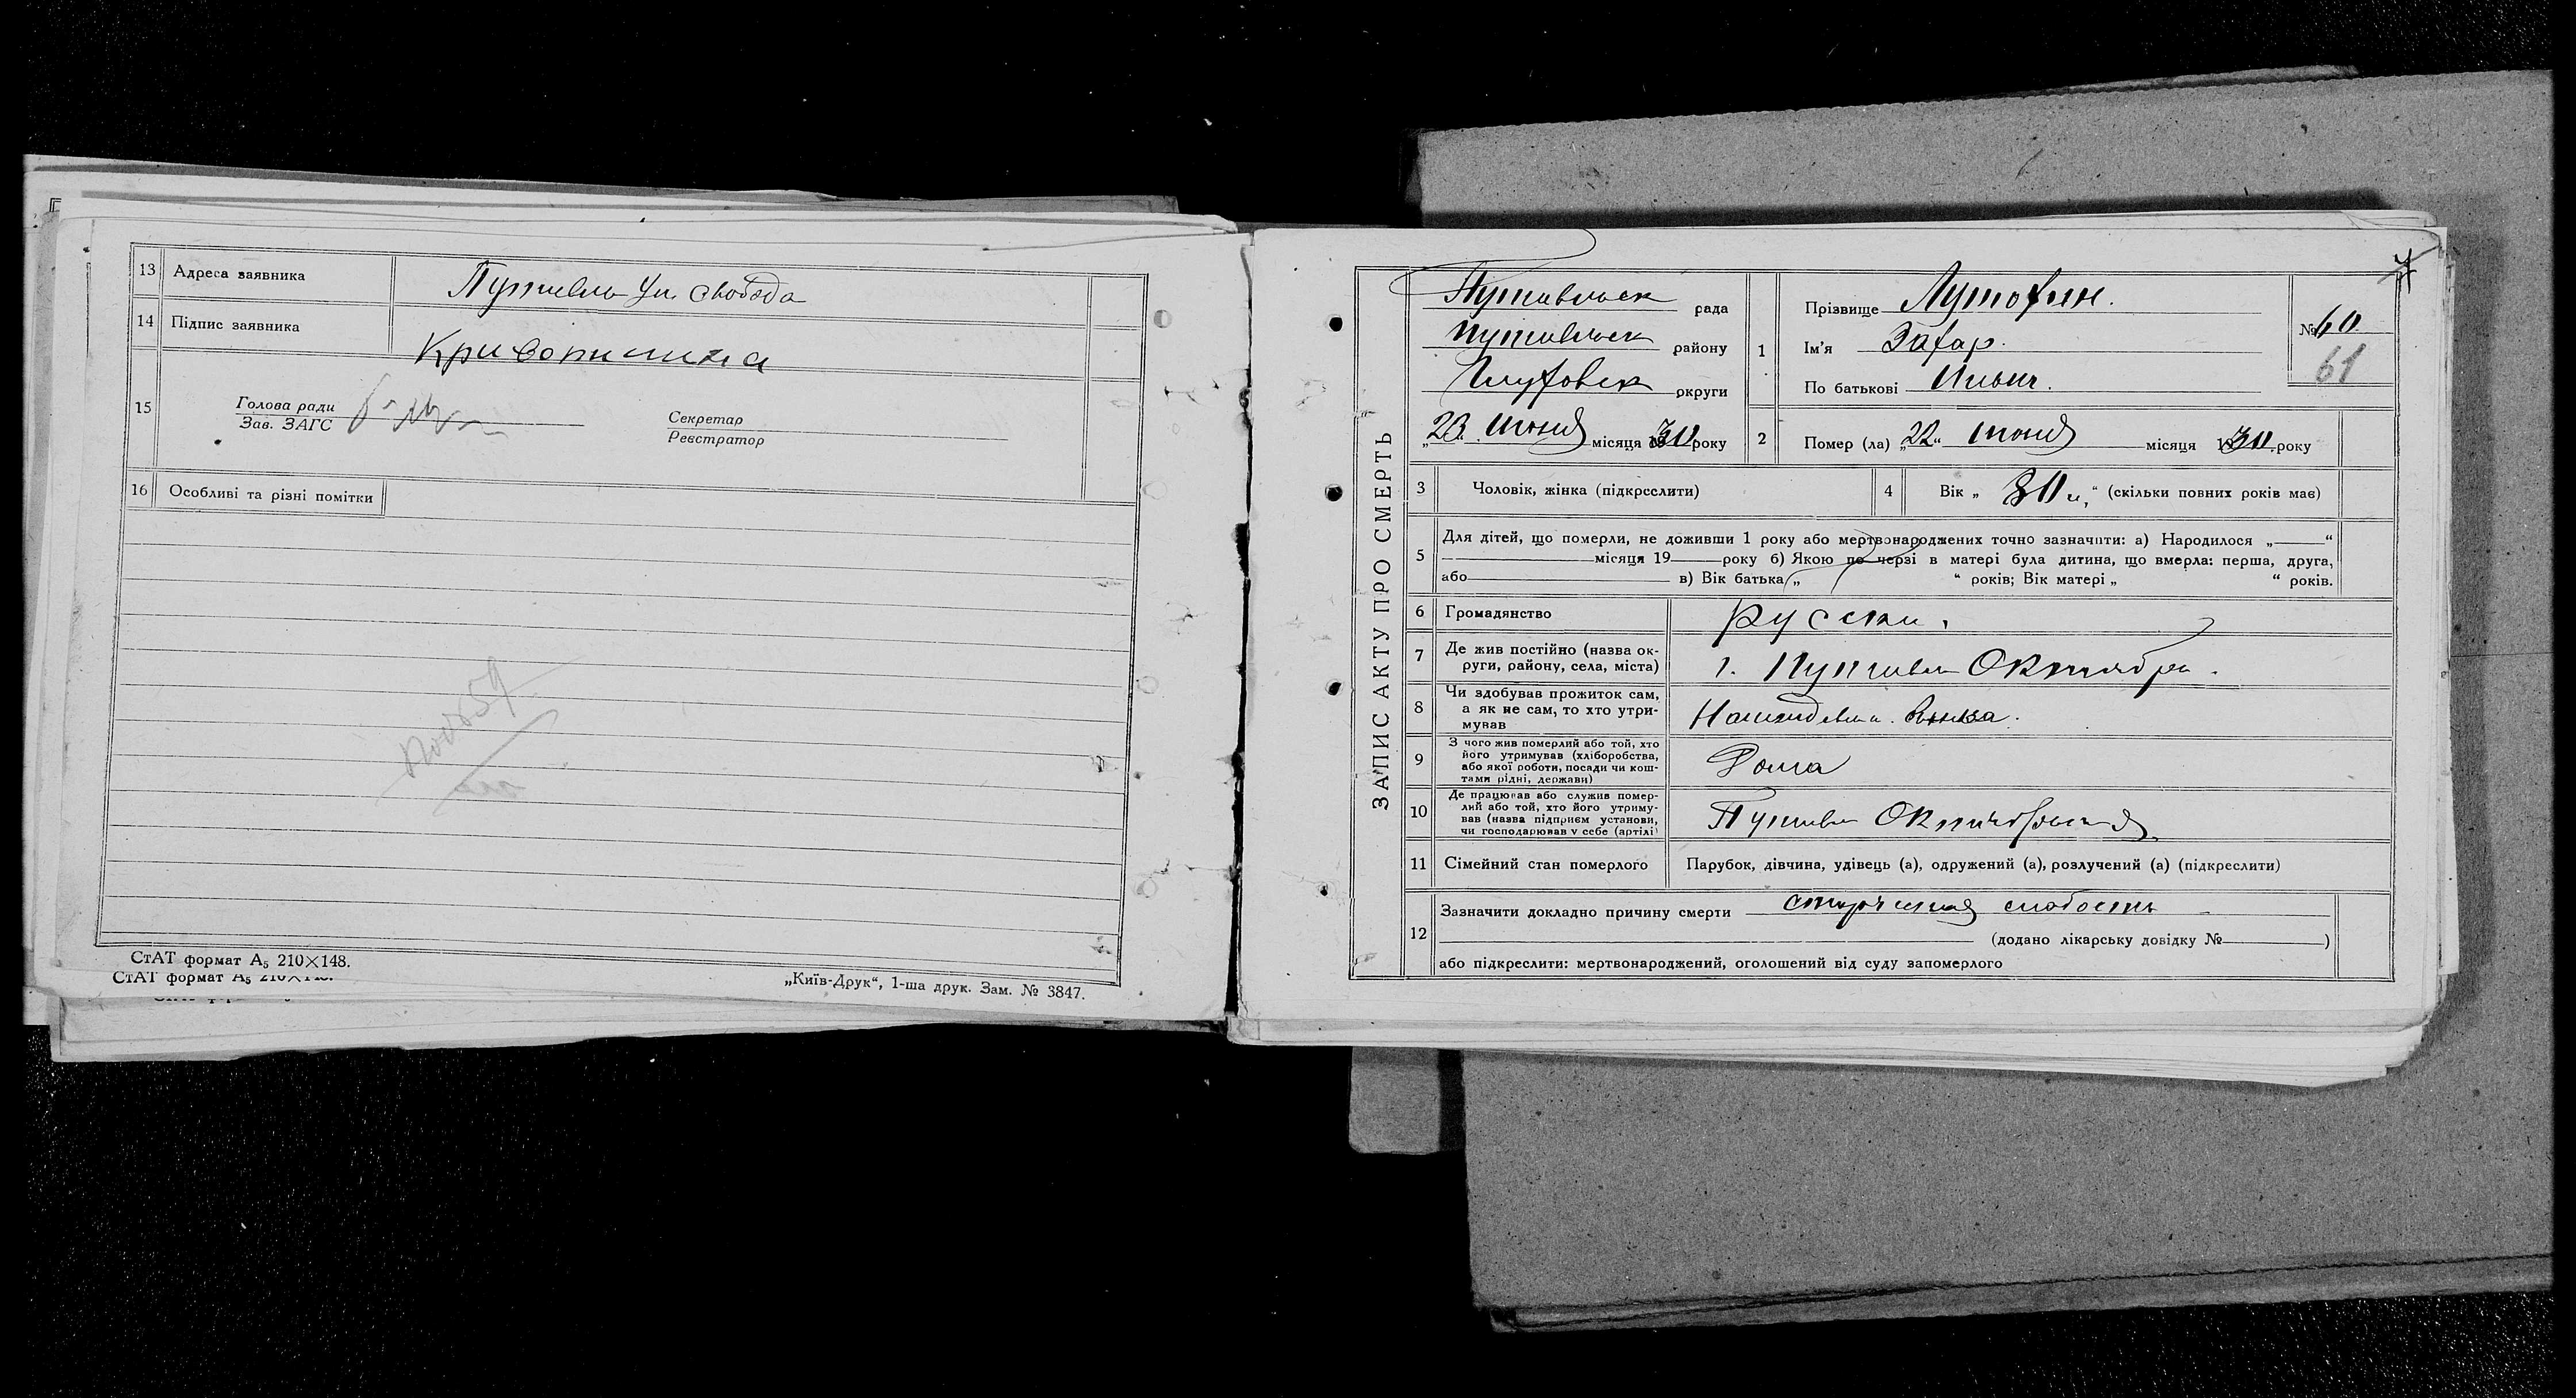 13 Адреса заявника Путивль ул. Свобода
14 Підпис заявника Кривопишина
15 Голова ради
Зав. ЗАГС
Секретар
Реєстратор
16 Особливі та різні помітки
СтАТ формат А5 210×148.
СтАТ формат А5 210×148.
„Київ-Друк“, 1-ша друк. Зам. № 3847.
ЗАПИС АКТУ ПРО СМЕРТЬ
Путивльск рада
Путивльск району
Глуховск округи
„23“ июня місяця 1930 року
1 Прізвище Лутохин.
Ім'я Захар.
По батькові Ильич.
№ 60
61
2 Помер (ла) „22“ июня місяця 1930 року
3 Чоловік, жінка (підкреслити)
4 Вік „80 л.“ (скільки повних років має)
5 Для дітей, що померли, не доживши 1 року або мертвонароджених точно зазначити: а) Народилося „ “
місяця 19 року б) Якою по черзі в матері була дитина, що вмерла: перша, друга,
або в) Вік батька „ “ років; Вік матері „ “ років.
6 Громадянство русски.
7 Де жив постійно (назва округи, району, села, міста) г. Путивль Октябрь.
8 Чи здобував прожиток сам, а як не сам, то хто утримував
9 З чого жив померлий або той, хто його утримував (хліборобства, або якої роботи, посади чи коштами рідні, держави) Дома
10 Де працював або служив померлий або той, хто його утримував (назва підприєм установи, чи господарював у себе (артілі) Путивль Октябрьская
11 Сімейний стан померлого Парубок, дівчина, удівець (а), одружений (а), розлучений (а) (підкреслити)
12 Зазначити докладно причину смерти старческая слабость
(додано лікарську довідку № )
або підкреслити: мертвонароджений, оголошений від суду запомерлого